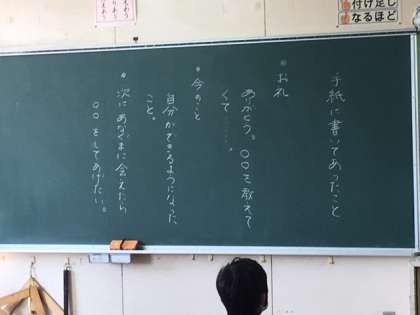 付け足し
なるほど
手紙に書いてあったこと
◎おれ
ありがとう。○○を教えて
くて……。
◎今のこと
自分ができるようになった
こと。
◎次にあなぐまに会えたら
○○をしてあげたい。